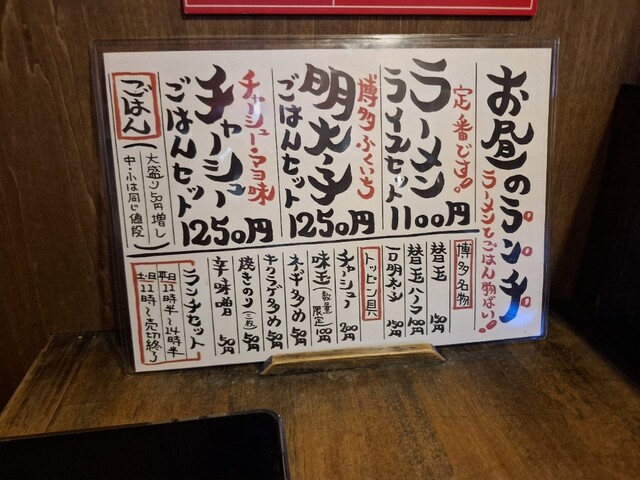 お昼のランチ
ラーメンとごはん物ばい!
定番です!
ラーメン
ライスセット
1100円
博多ふくいち
明太子
ごはんセット
1250円
チャーシュー・マヨ味
チャーシュー
ごはんセット
1250円
ごはん
大盛り50円増し
中・小は同じ値段
博多名物
替玉 150円
替玉ハーフ 100円
一口明太子 150円
トッピン具
チャーシュー 200円
味玉(数量限定) 100円
ネギ多め 50円
キクラゲ多め 50円
焼きのり(三枚) 50円
辛味噌 50円
ランチセット
平日 11時半〜14時半
土日 11時〜売切終了